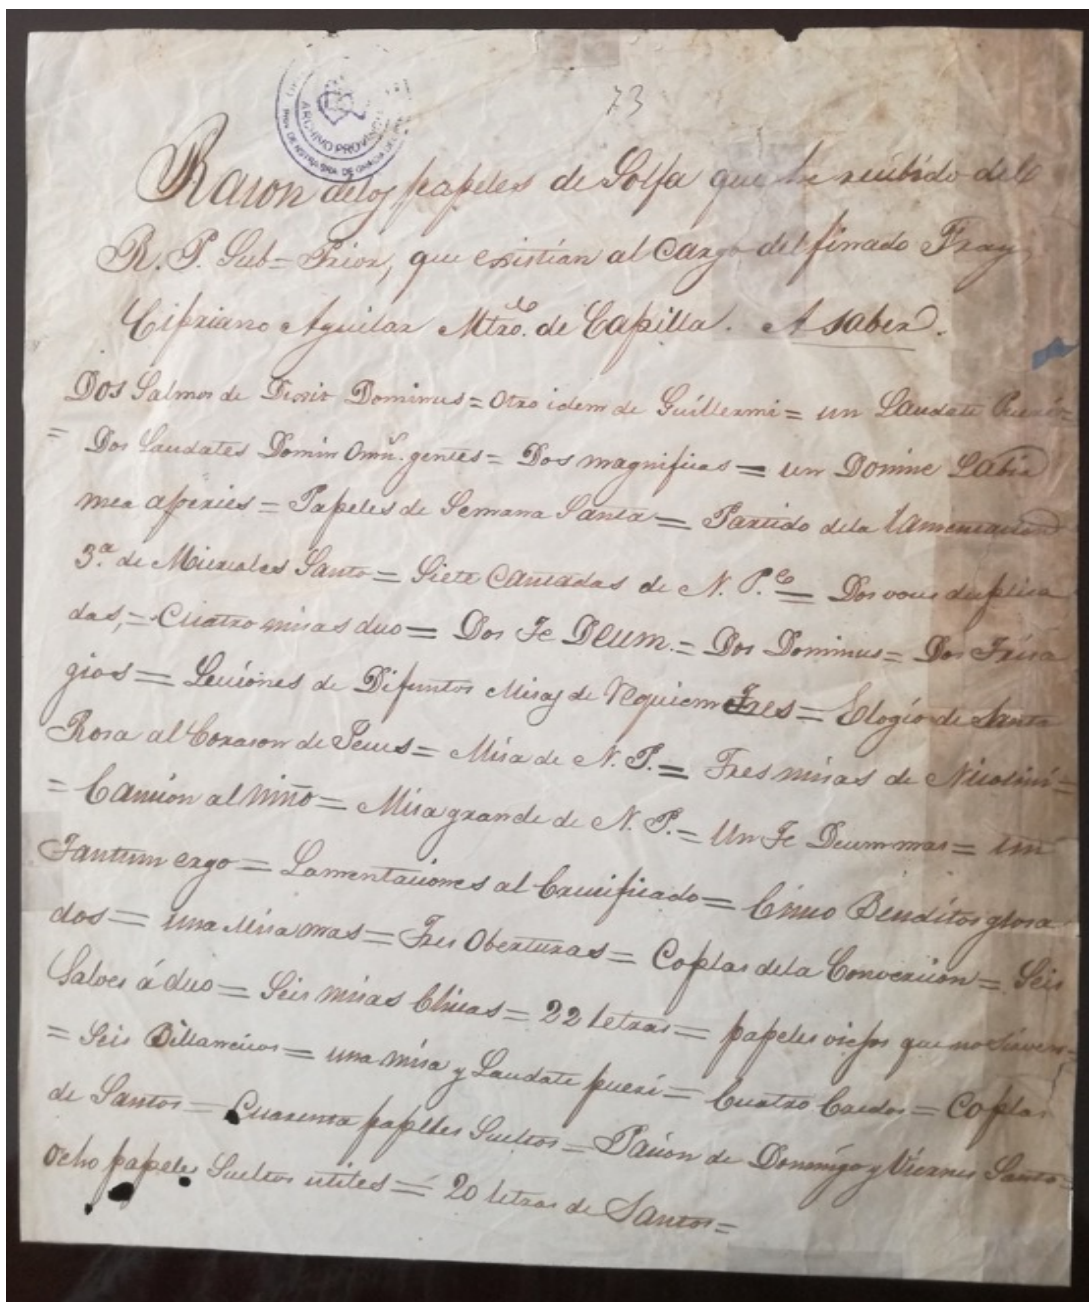 73
ARCHIVO PROVINCIAL
Rason delos papeles de Solfa que he recibido del
R. P. Sub=Prior, que existian al Cargo del finado Fray
Cipriano Aguilar Mtro. de Capilla. A saber.
Dos Salmos de Dixit Dominus = Otro idem de Guillermi = un Laudate Pueri =
= Dos Laudates Domin Omn. gentes = Dos magnificas = un Domine Labia
mea aperies = Papeles de Semana Santa = Partido dela Lamentacion
3.a de Miercoles Santo = Siete Cantadas de N. P.e = Dos voces duplica
das, = Cuatro misas duo = Dos Te Deum. = Dos Dominus = Dos Trisa
gios = Lecciones de Difuntos Misas de Requiem Tres = Elogio de Santa
Rosa al Corason de Jesus = Misa de N. P. = Tres misas de Nicolini =
= Cancion al Niño = Misa grande de N. P. = Un Te Deum mas = un
Tantum ergo = Lamentaciones al Crucificado = Cinco Benditos glosa
dos = una Misa mas = Tres Oberturas = Coplas dela Conversion = Seis
Salves á duo = Seis misas Chicas = 22 letras = papeles viejos que no sirven =
= Seis Billancicos = una misa y Laudate pueri = Cuatro Credos = Coplas
de Santos = Cuarenta papeles Sueltos = Pacion de Domingo y Viernes Santo =
Ocho papeles Sueltos utiles = 20 letras de Santos =